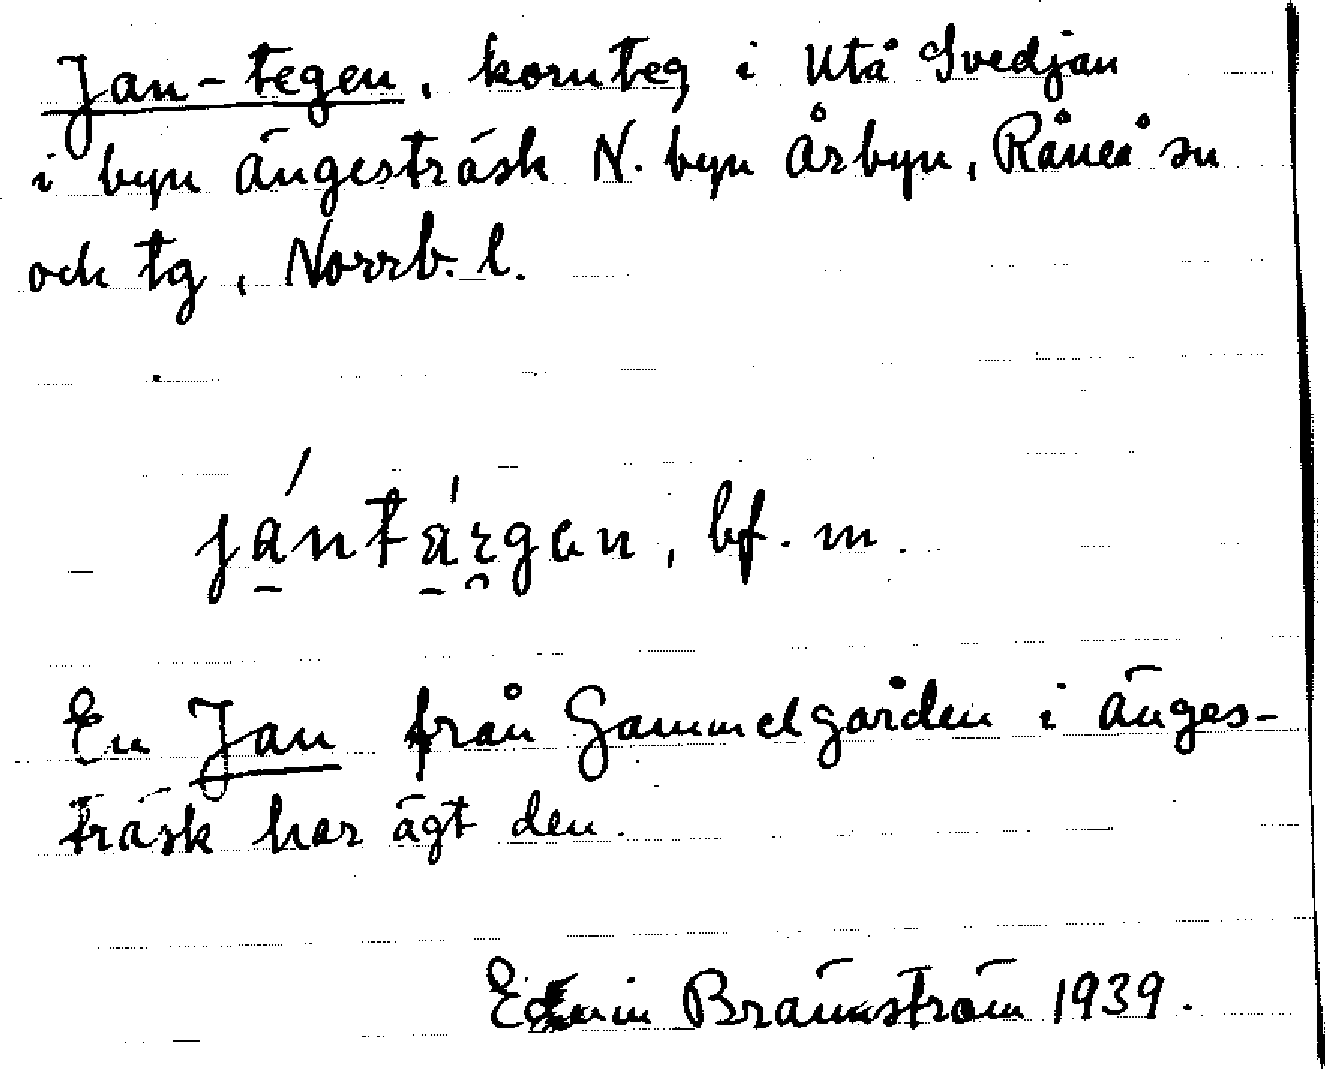 Jan-tegen, kornteg i Utå Svedjan
i byn Ängesträsk N. byn Årbyn, Råneå sn
och tg, Norrb. l.
jántárgen, bf. m.
En Jan från Gammelgården i Änges-
träsk har ägt den.
Edwin Brännström 1939.